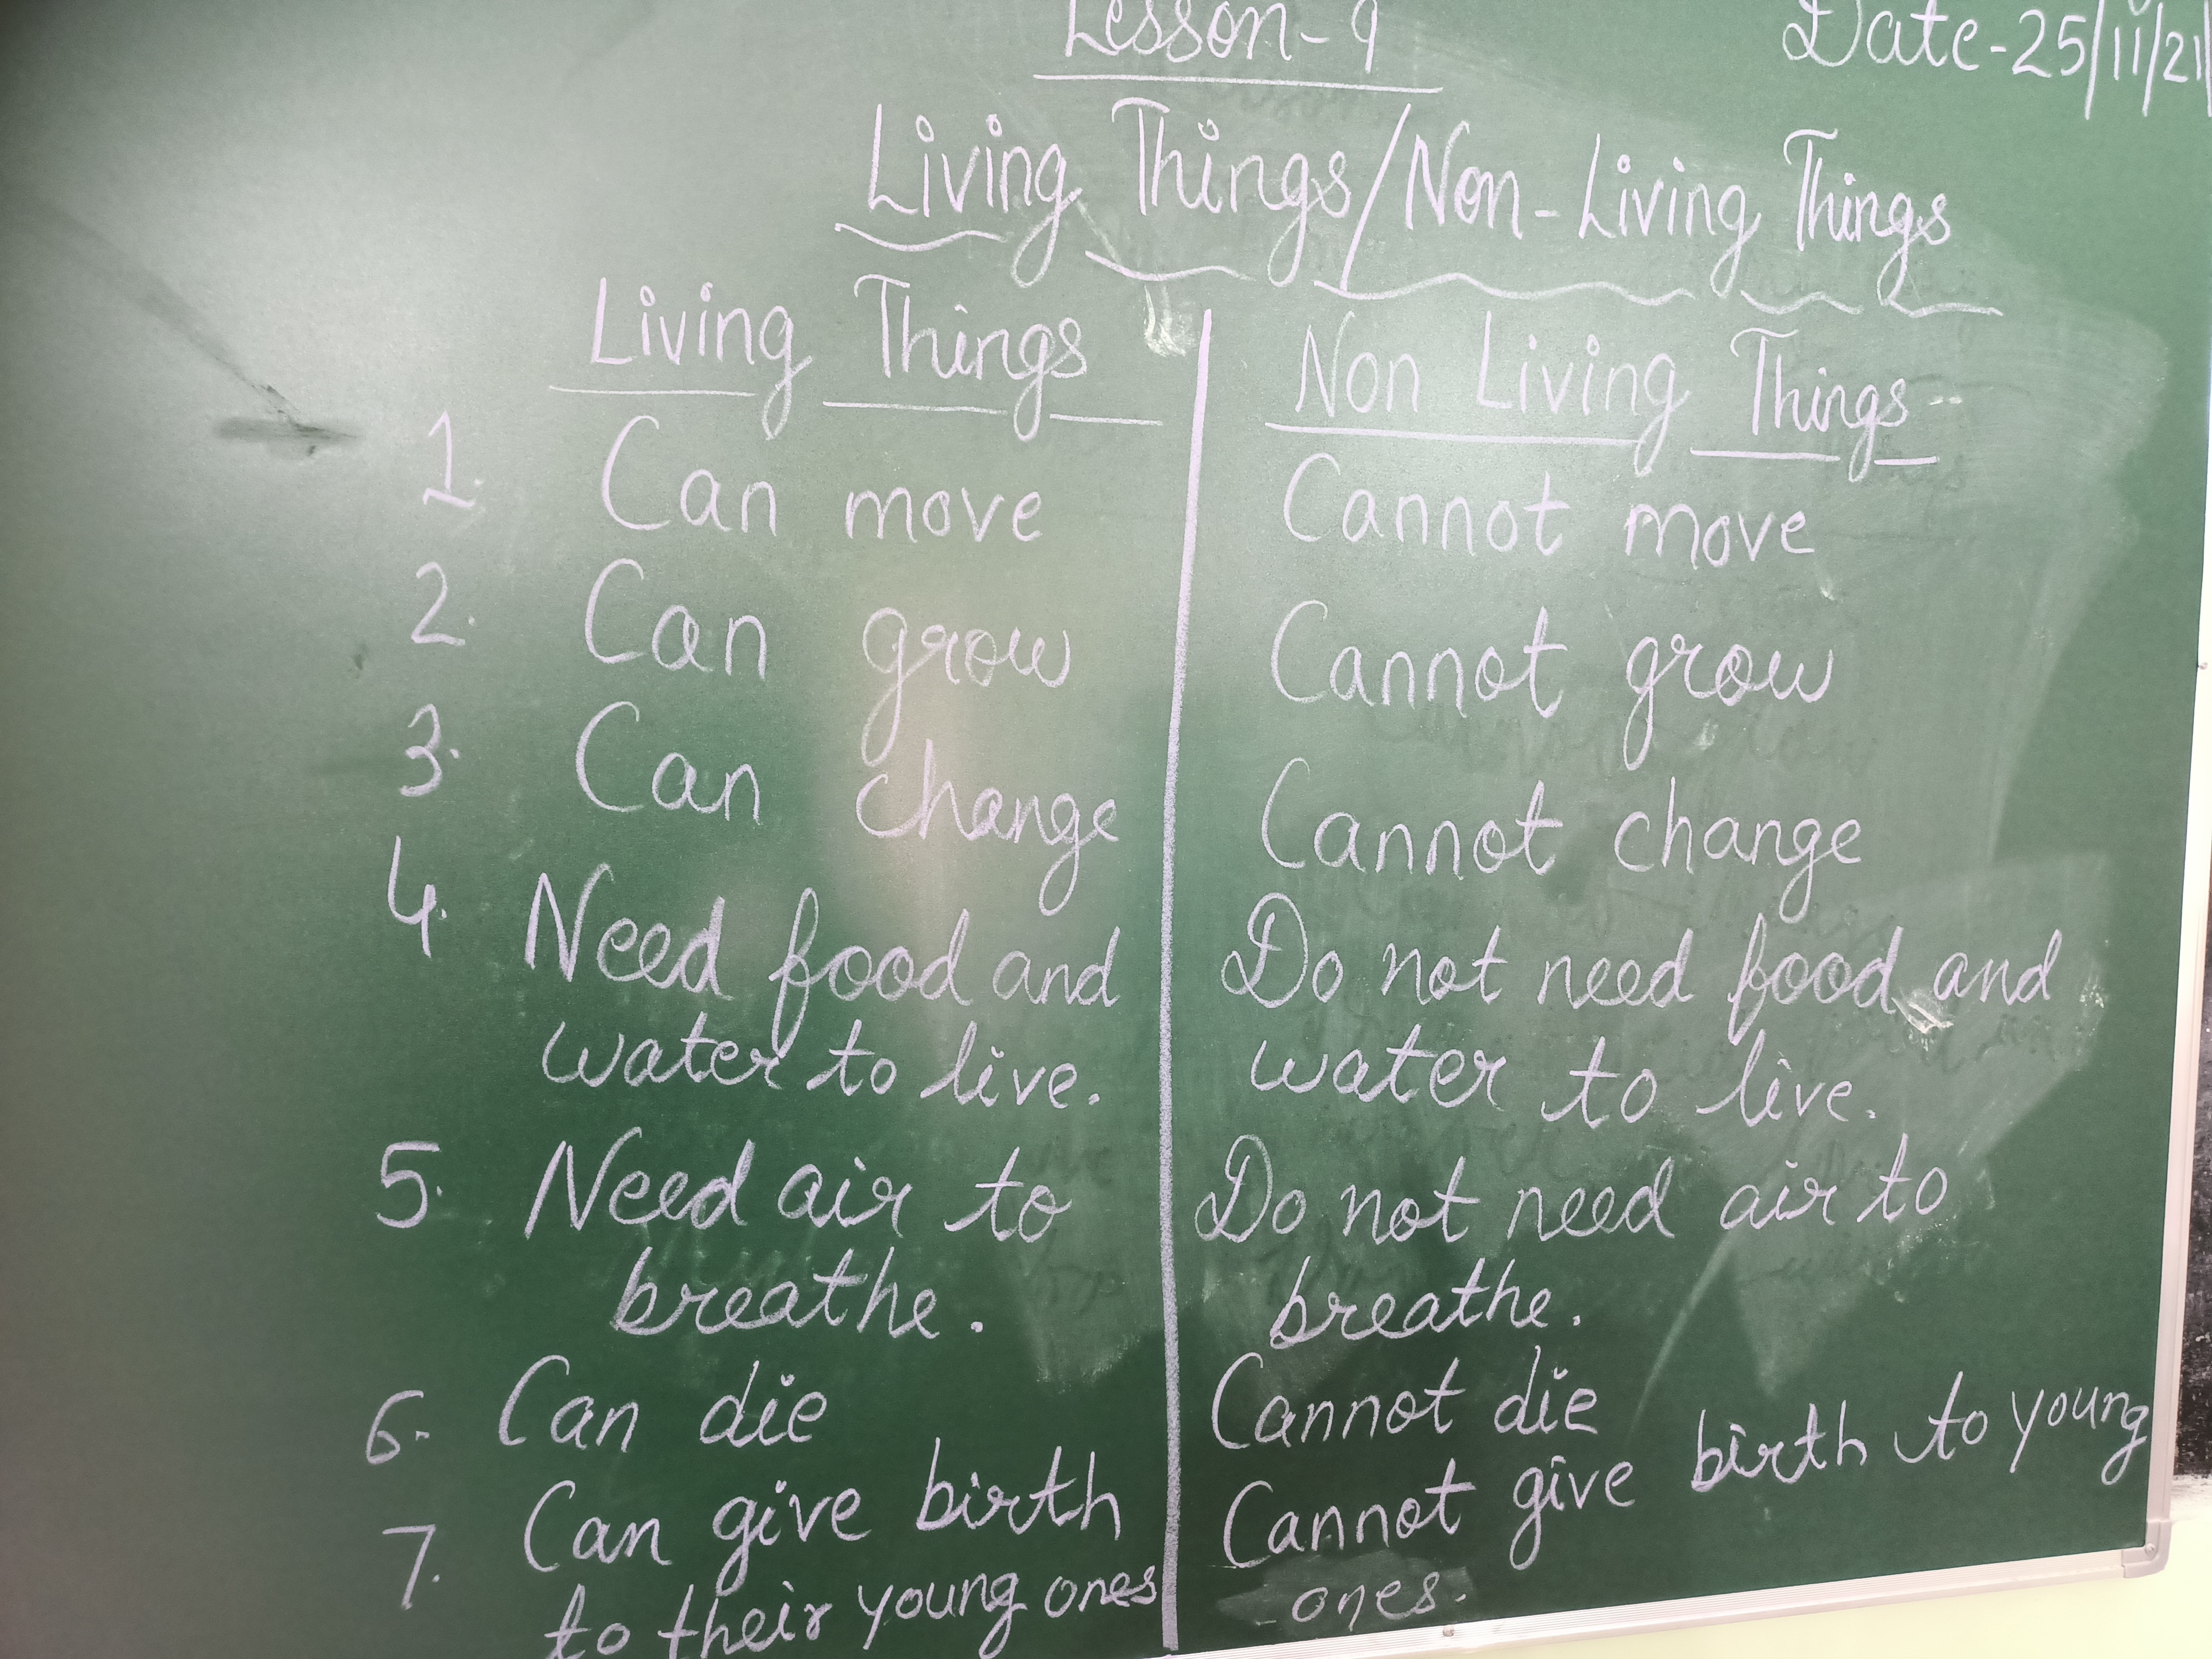 Lesson-9
Date-25/11/21
Living Things/Non-Living Things
Living Things
Non Living Things
1. Can move
Cannot move
2. Can grow
Cannot grow
3. Can change
Cannot change
4. Need food and
water to live.
Do not need food and
water to live.
5. Need air to
breathe.
Do not need air to
breathe.
6. Can die
Cannot die
7. Can give birth
to their young ones
Cannot give birth to young
ones.